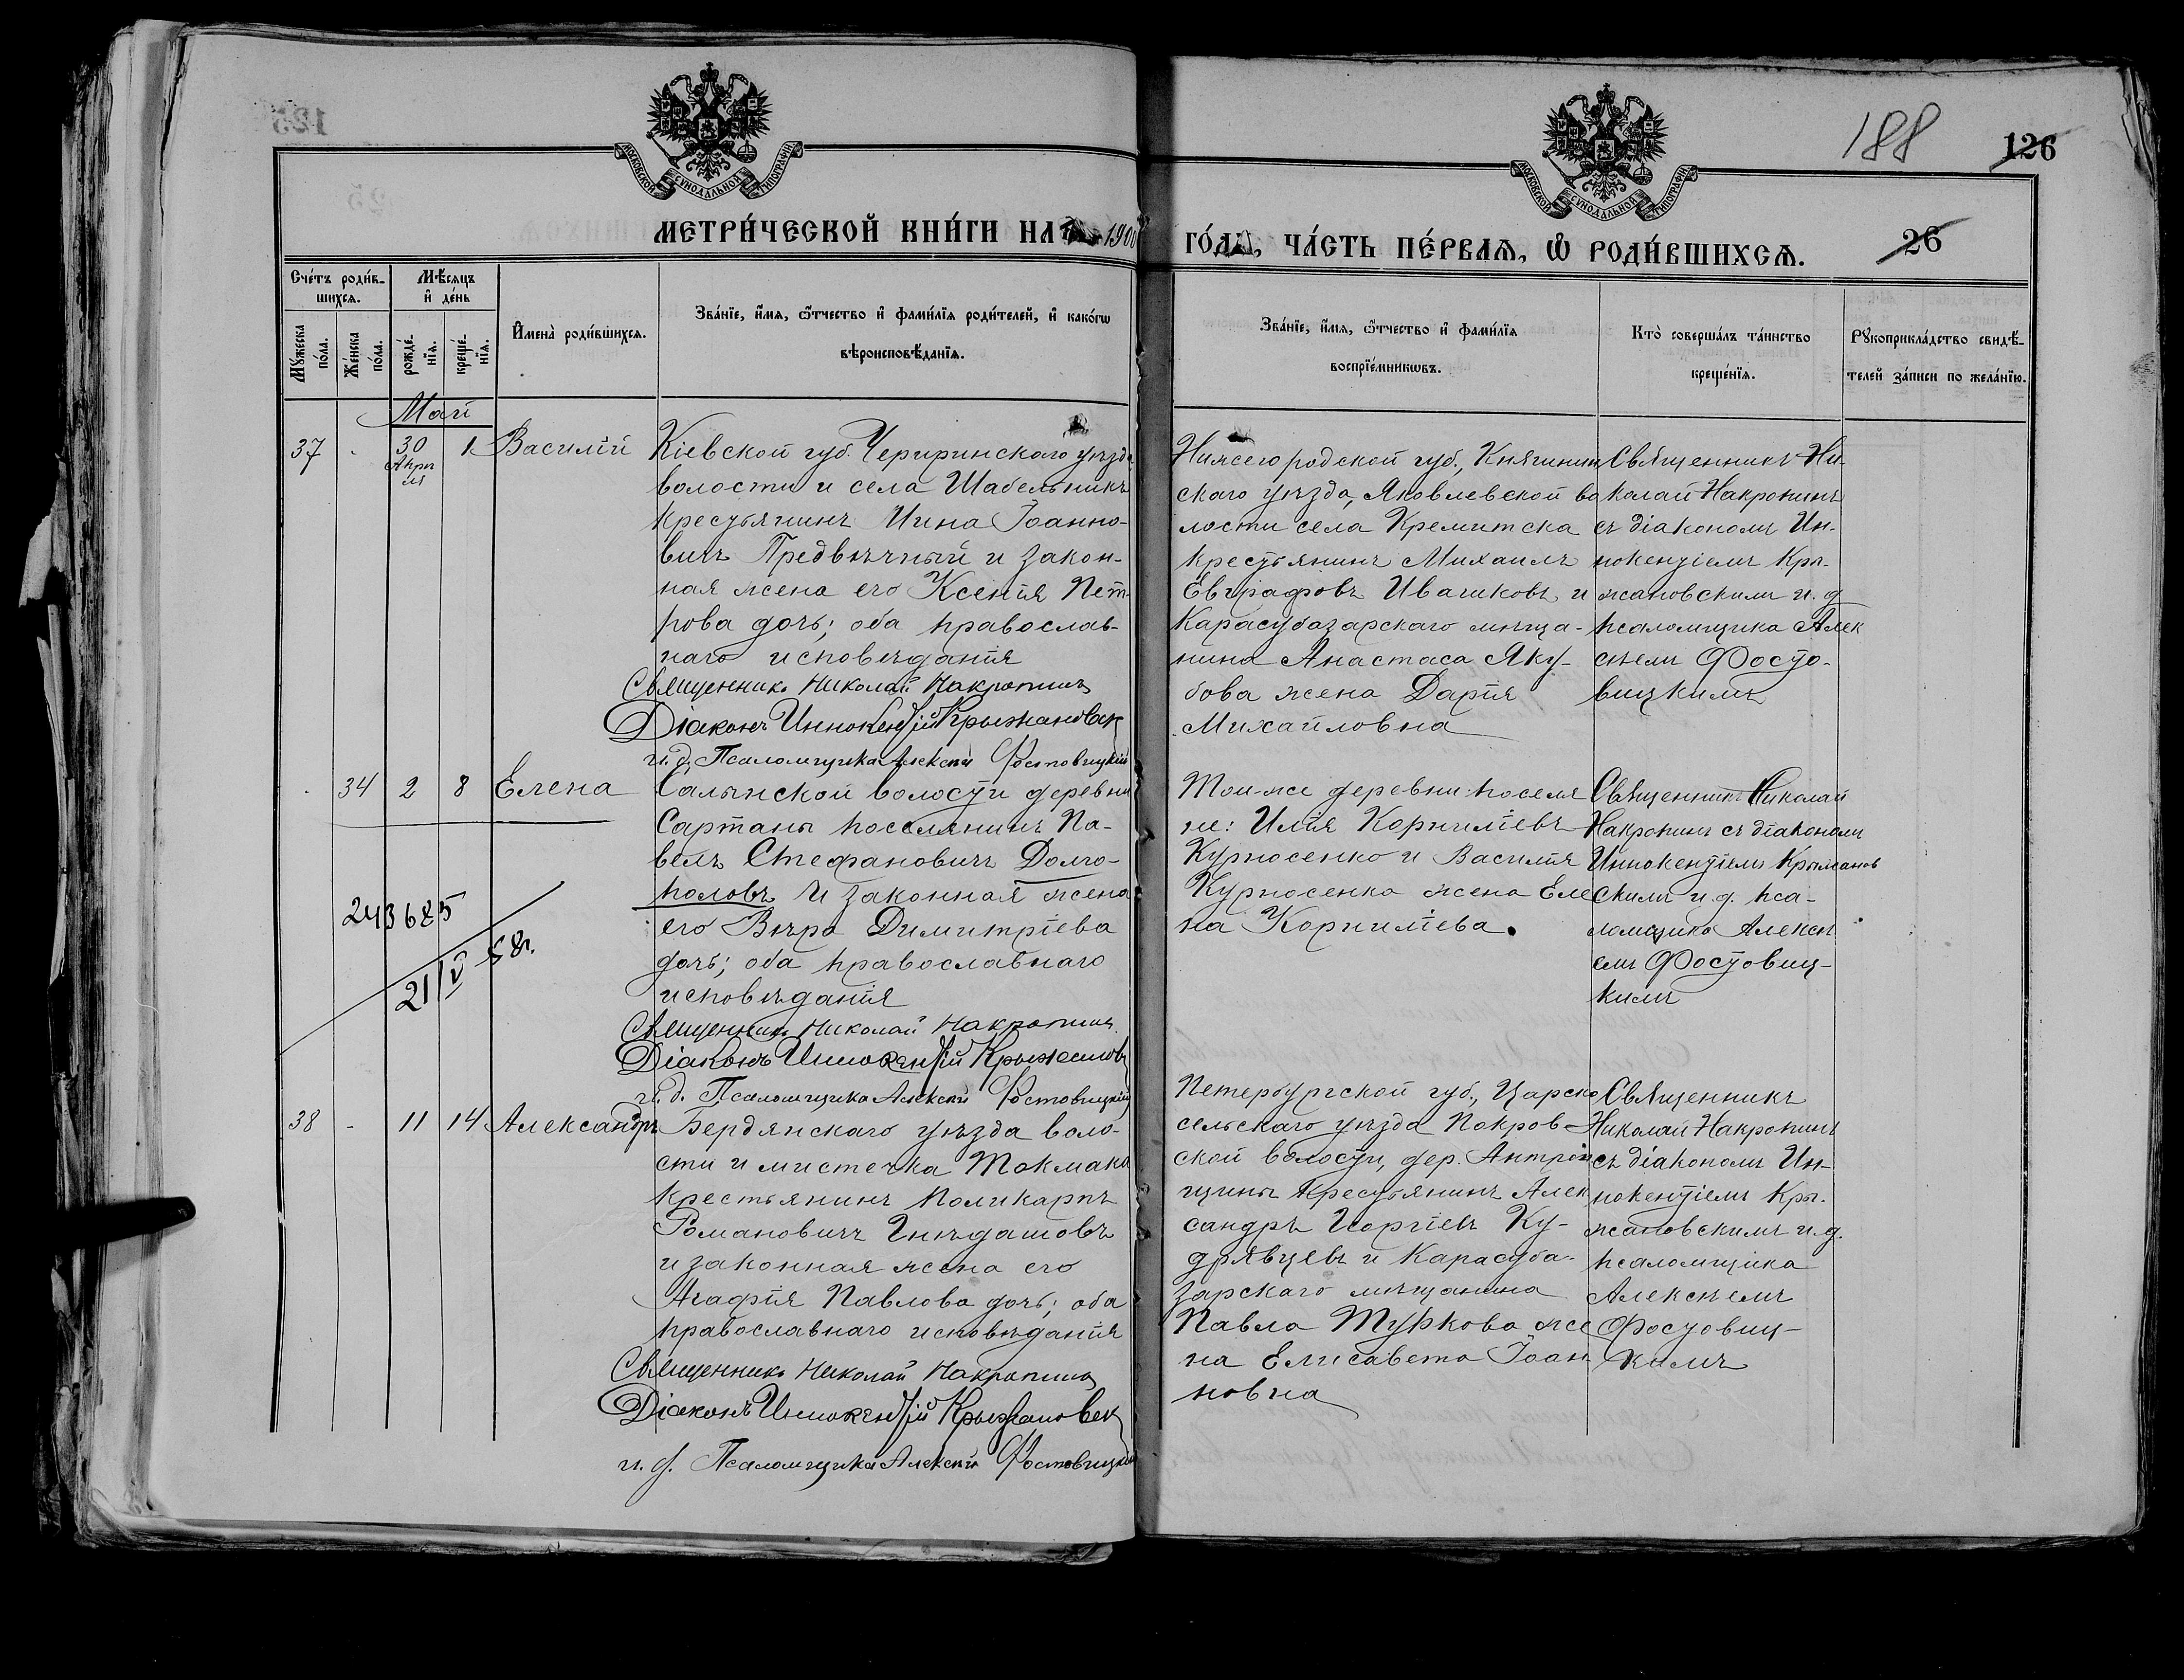 125
МОСКОВСКОЙ СУНОДАЛЬНОЙ ТИПОГРАФІИ
МЕТРИ́ЧЕСКОЙ КНИ́ГИ НА 1900
Сче́тъ роди́в-
шихся.
Мѣ́сяцъ
и де́нь
Имена̀ роди́вшихся.
Зва́нїе, и́мя, ѻ҆́тчество и фами́лїя роди́телей, и како́гѡ
вѣроисповѣ́данїя.
Мꙋ́жеска по́ла.
Же́нска по́ла.
рожде́-нїя.
креще́-нїя.
Май
37 - 30 Апрѣля 1 Василій
Кіевской губ. Черкринскаго уѣзда
волости и села Шабельникъ
крестьянинъ Мина Іоанно-
вичъ Предвѣчный и закон-
ная жена его Ксенія Пет-
рова дочь; оба православ-
наго исповѣданія
Священникъ Николай Накропинъ
Діаконъ Иннокентій Крыжановск
и. д. Псаломщика Алексѣй Фостовицкій
- 34 2 8 Елена
Салынской волости деревни
Сартаны поселянинъ Па-
велъ Стефановичъ Долго-
половъ и законная жена
его Вѣра Димитріева
дочь; оба православнаго
исповѣданія
243685
21/V 58г.
Священникъ Николай Накропинъ
Діаконъ Иннокентій Крыжановс
и. д. Псаломщика Алексѣй Фостовицкій
38 - 11 14 Александръ
Бердянскаго уѣзда воло-
сти и мистечка Токмака
крестьянинъ Поликарпъ
Романовичъ Гнѣдашовъ
и законная жена его
Агафія Павлова дочь; оба
православнаго исповѣданія
Священникъ Николай Накропинъ
Діаконъ Иннокентій Крыжановск
и. д. Псаломщика Алексѣй Фостовицкій
188
126
26
МОСКОВСКОЙ СУНОДАЛЬНОЙ ТИПОГРАФІИ
ГО́ДЪ, ЧА́СТЬ ПЕ́РВАЯ, Ѡ҆ РОДИ́ВШИХСЯ.
Зва́нїе, и́мя, ѻ҆́тчество и фами́лїя
воспрїе́мникѡвъ.
Кто̀ соверша́лъ та́инство
креще́нїя.
Рꙋкоприкла́дство свидѣ́-
телей за́писи по жела́нїю.
Нижегородской губ., Княгинин
скаго уѣзда, Яковлевской во
лости села Кремитска
крестьянинъ Михаилъ
Евграфовъ Ивашковъ и
Карасубазарскаго мѣща-
нина Анастаса Яку-
бова жена Дарія
Михайловна
Священникъ Ни-
колай Накропинъ
съ діакономъ Ин-
нокентіемъ Кры-
жановскимъ и. д.
псаломщика Алек
сѣемъ Фостo-
вицкимъ
Той-же деревни поселя
не: Илія Корниліевъ
Курносенко и Василія
Курносенка жена Еле
на Корниліева.
Священникъ Николай
Накропинъ съ діакономъ
Иннокентіемъ Крыжанов
скимъ и. д. пса-
ломщика Алексѣ
емъ Фостовиц-
кимъ
Петербургской губ., Царско
сельскаго уѣзда Покров-
ской волости, дер. Антроп
щины крестьянинъ Алек
сандръ Георгіевъ Ку-
дрявцевъ и Карасуба-
зарскаго мѣщанина
Павла Туркова же
на Елисавета Іоан
новна
Священникъ
Николай Накропинъ
съ діакономъ Ин-
нокентіемъ Кры-
жановскимъ и. д.
псаломщика
Алексѣемъ
Фостовиц-
кимъ